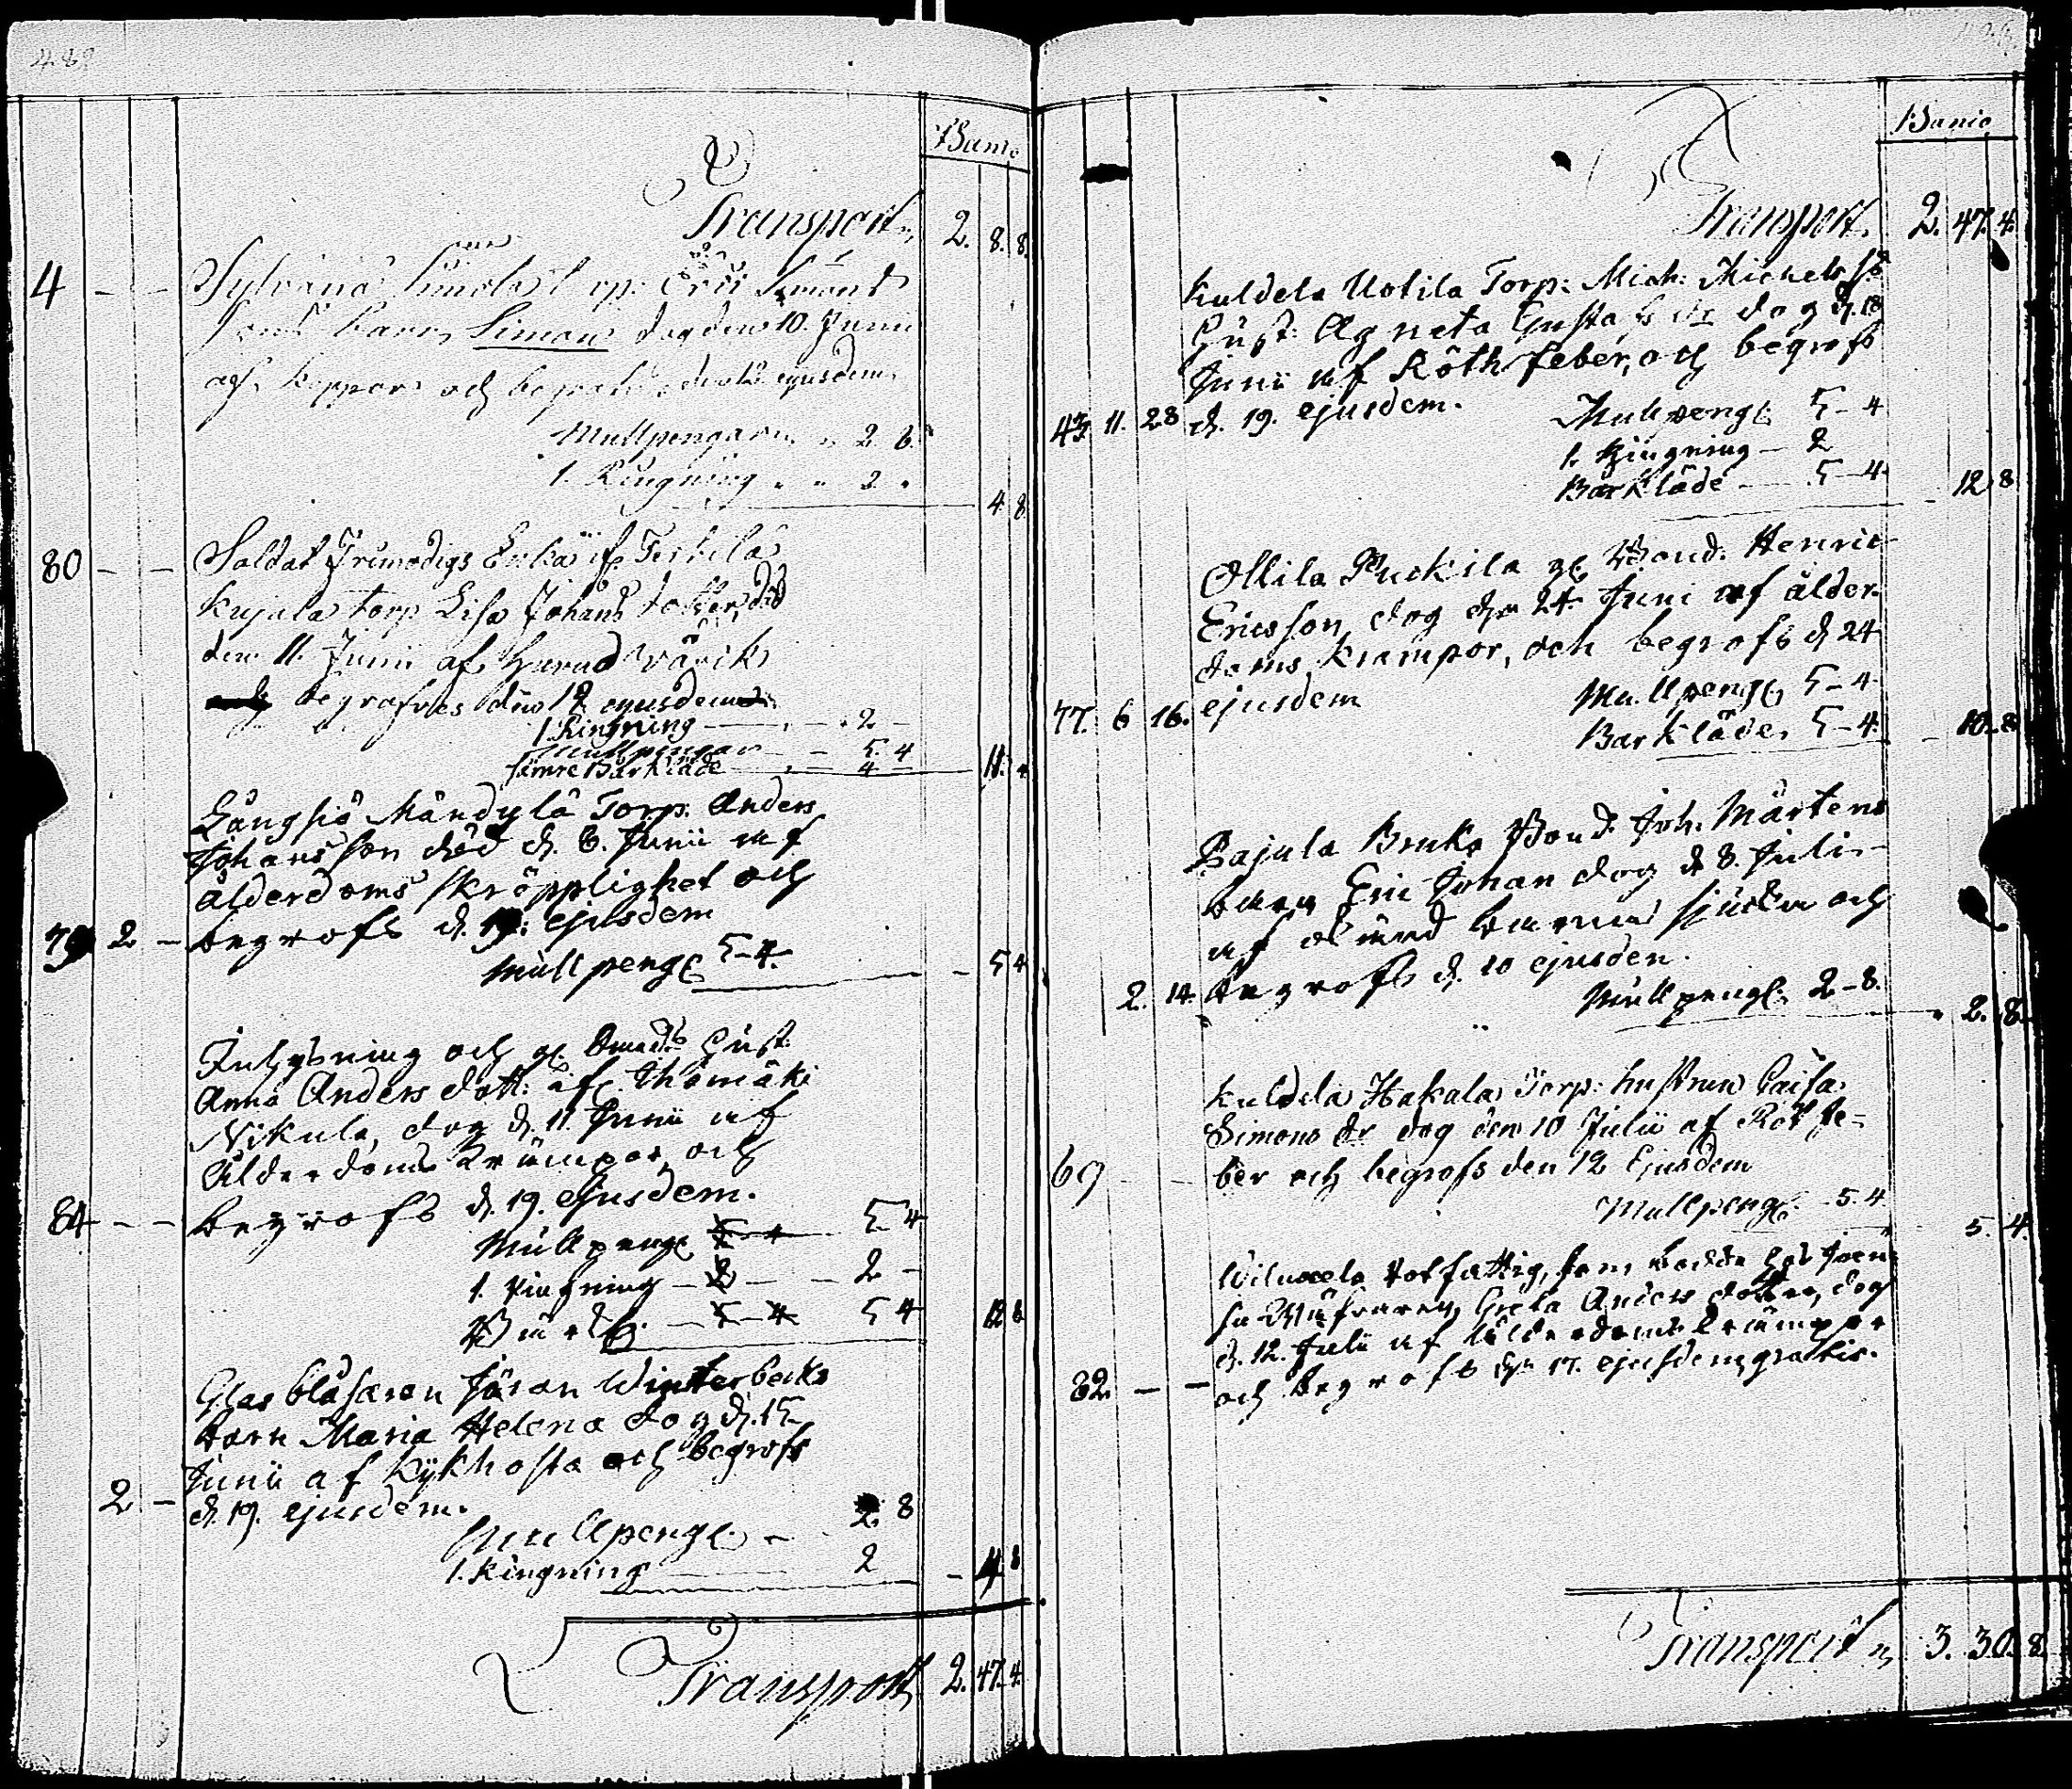 Banco
Transport 2. 8. 8.
4 - - Sylvänä Simola Torp: Eric Simons
sons barn Simon dog den 10. Junii
af koppor och begrafdes den 12 ejusdem
Mullpengar 2. 8.
1. Ringning 2.
4 8.
80 - - Soldat Enka
Kujala torp Lisa Johans dotter död
den 11 Junii af
begrafves den 12 ejusdem
1. Ringning - 2 -
Mullpengar - 5. 4
sämre Bårkläde - 4 -
11. 4
Långsiö Mändylä Torp: Anders
Johansson död d. 6. Junii af
ålderdoms skröpplighet och
79 2 - begrofs d. 19: ejusdem
Mullpeng: 5-4.
- 5 4
och gl. Hust:
Anna Anders dott: ifr. Thomäki
Nikula, dog d. 11 Junii af
Ålderdoms Krämpor och
84 - - begrofs d. 19. ejusdem.
Mullpeng 5 4
1. Ringning - 2 -
5 4
12 8
Glasblåsaren Jöran Winterbecks
barn Maria Helena dog d. 15
Junii af Kykhosta och begrofs
2 - d. 19. ejusdem.
Mullpeng: - 2. 8
1. Ringning 2
- 4 8
Transport 2. 47. 4.
Banco
Transport. 2. 47. 4.
Kuldela Uotila Torp: Mich: Michels so
Hust: Agneta Gustafs dr dog d. 18
Junii af Röthfeber, och begrofs
43 11. 28 d. 19. ejusdem.
Mullpeng: 5-4
1. Ringning - 2
Barkläde - 5-4
- 12 8
Ollila Puckila gl. Bond. Henric
Ericsson dog den 24 Juni af ålder-
doms krämpor, och begrofs d 24
77. 6 16. ejusdem
Mullpeng: 5-4
Barkläde, 5-4.
- 10. 8
Pajula Bruks Bond. Joh. Mårtens
barn Eric Johan dog d 8. Juli
af okänd barna sjukdom och
2. 14. begrofs d. 10 ejusden.
Mullpeng: 2-8.
2. 8.
Kuldela Hakala Torp: hustrun Caisa
Simons dr dog den 10 Julii af Röt fe-
69 - - ber och begrofs den 12 Ejusdem
Mullpeng: - 5. 4.
5. 4.
Rotfattig, som bodde hos
Greta Anders dotter, dog
d. 12. Julii af Ålderdoms Krämpor
82 - - och begrofs d. 17. ejusdem gratis.
Transport 3. 30. 8.